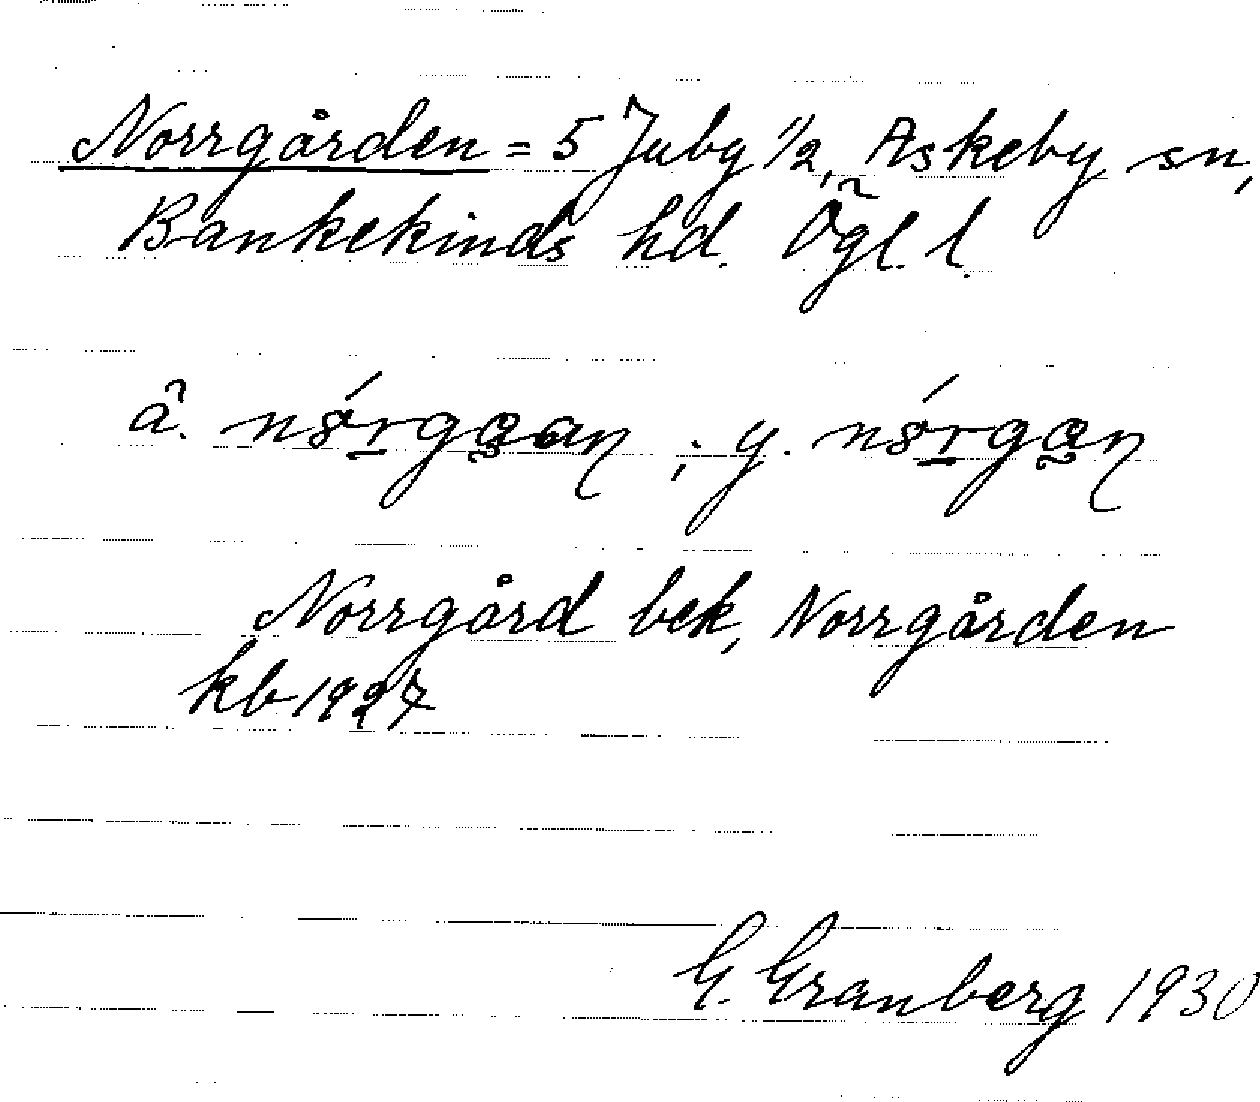 Norrgården = 5 Juby 1/2, Askeby sn,
Bankekinds hd. Ögl. l.
â. ; y.
Norrgård bek, Norrgården
kb 1927
G. Granberg 1930